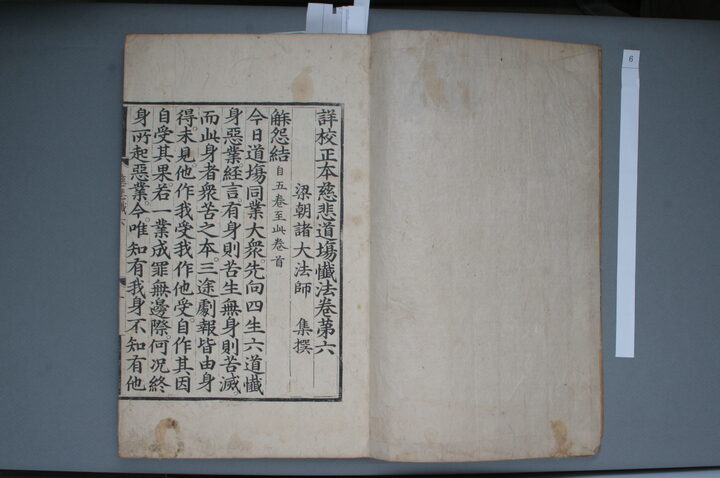 詳校正本慈悲道場懺法卷第六
梁朝諸大法師 集撰
解怨結自五卷至此卷首
今日道場同業大衆。先向四生六道懺
身惡業。経言。有身則苦生無身則苦滅。
而此身者衆苦之本。三途劇報皆由身
得。未見他作我受我作他受。自作其因
自受其果。若一業成罪無邊際。何况終
身所起惡業。今唯知有我身不知有他
6